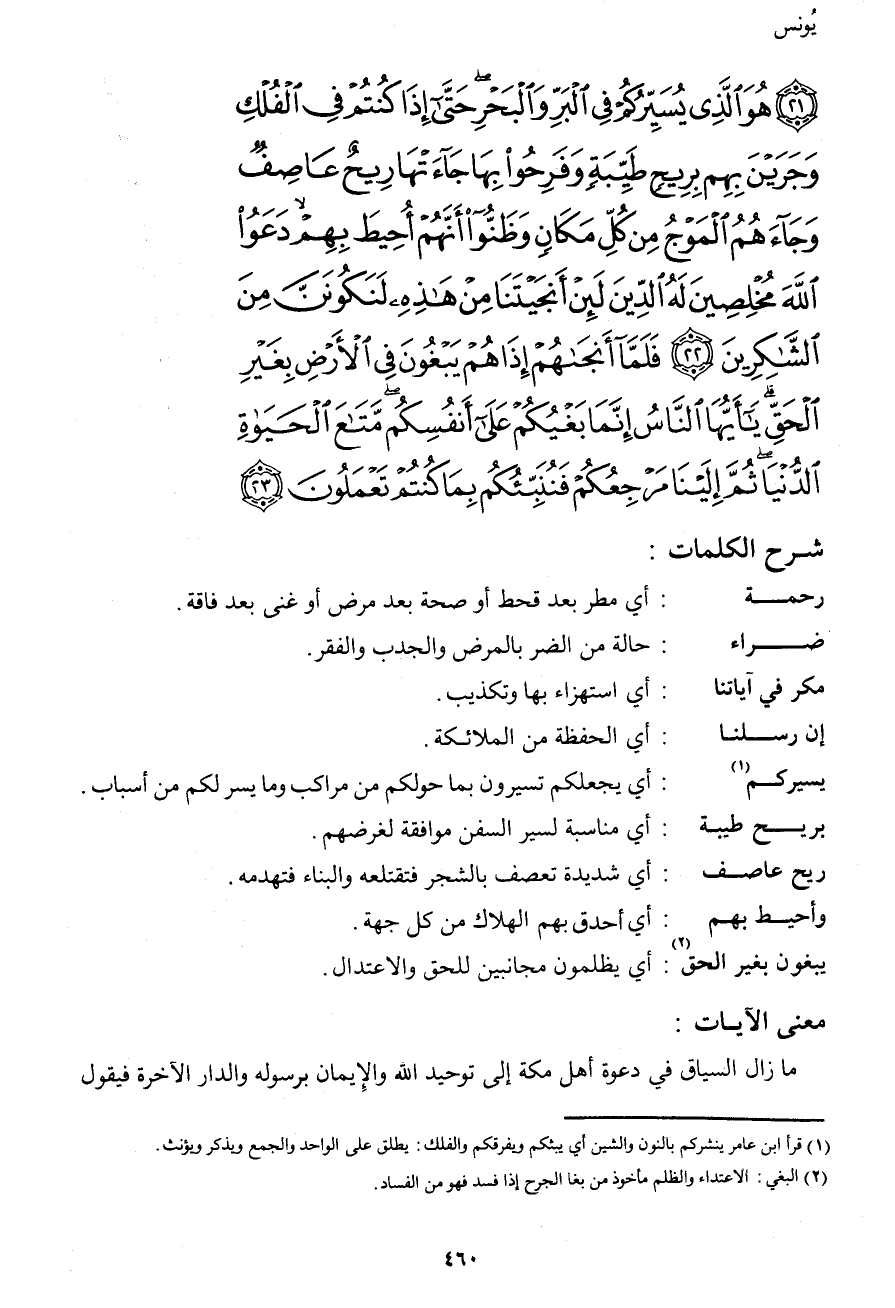 يُونس
﴿٢١﴾ هُوَ ٱلَّذِى يُسَيِّرُكُمْ فِى ٱلْبَرِّ وَٱلْبَحْرِ ۖ حَتَّىٰٓ إِذَا كُنتُمْ فِى ٱلْفُلْكِ
وَجَرَيْنَ بِهِم بِرِيحٍ طَيِّبَةٍ وَفَرِحُوا۟ بِهَا جَآءَتْهَا رِيحٌ عَاصِفٌ
وَجَآءَهُمُ ٱلْمَوْجُ مِن كُلِّ مَكَانٍ وَظَنُّوٓا۟ أَنَّهُمْ أُحِيطَ بِهِمْ ۙ دَعَوُا۟
ٱللَّهَ مُخْلِصِينَ لَهُ ٱلدِّينَ لَئِنْ أَنجَيْتَنَا مِنْ هَٰذِهِۦ لَنَكُونَنَّ مِنَ
ٱلشَّٰكِرِينَ ﴿٢٢﴾ فَلَمَّآ أَنجَىٰهُمْ إِذَا هُمْ يَبْغُونَ فِى ٱلْأَرْضِ بِغَيْرِ
ٱلْحَقِّ ۗ يَٰٓأَيُّهَا ٱلنَّاسُ إِنَّمَا بَغْيُكُمْ عَلَىٰٓ أَنفُسِكُم ۖ مَّتَٰعَ ٱلْحَيَوٰةِ
ٱلدُّنْيَا ۖ ثُمَّ إِلَيْنَا مَرْجِعُكُمْ فَنُنَبِّئُكُم بِمَا كُنتُمْ تَعْمَلُونَ ﴿٢٣﴾
شرح الكلمات :
رحمة : أي مطر بعد قحط أو صحة بعد مرض أو غنى بعد فاقة .
ضراء : حالة من الضر بالمرض والجدب والفقر .
مكر في آياتنا : أي استهزاء بها وتكذيب .
إن رسلنا : أي الحفظة من الملائكة .
يسيركم(١) : أي يجعلكم تسيرون بما حولكم من مراكب وما يسر لكم من أسباب .
بريح طيبة : أي مناسبة لسير السفن موافقة لغرضهم .
ريح عاصف : أي شديدة تعصف بالشجر فتقتلعه والبناء فتهدمه .
وأحيط بهم : أي أحدق بهم الهلاك من كل جهة .
يبغون بغير الحق(٢) : أي يظلمون مجانبين للحق والاعتدال .
معنى الآيات :
ما زال السياق في دعوة أهل مكة إلى توحيد الله والإيمان برسوله والدار الآخرة فيقول
(١) قرأ ابن عامر ينشركم بالنون والشين أي يبثكم ويفرقكم والفلك : يطلق على الواحد والجمع ويذكر ويؤنث .
(٢) البغي : الاعتداء والظلم مأخوذ من بغا الجرح إذا فسد فهو من الفساد .
٤٦٠